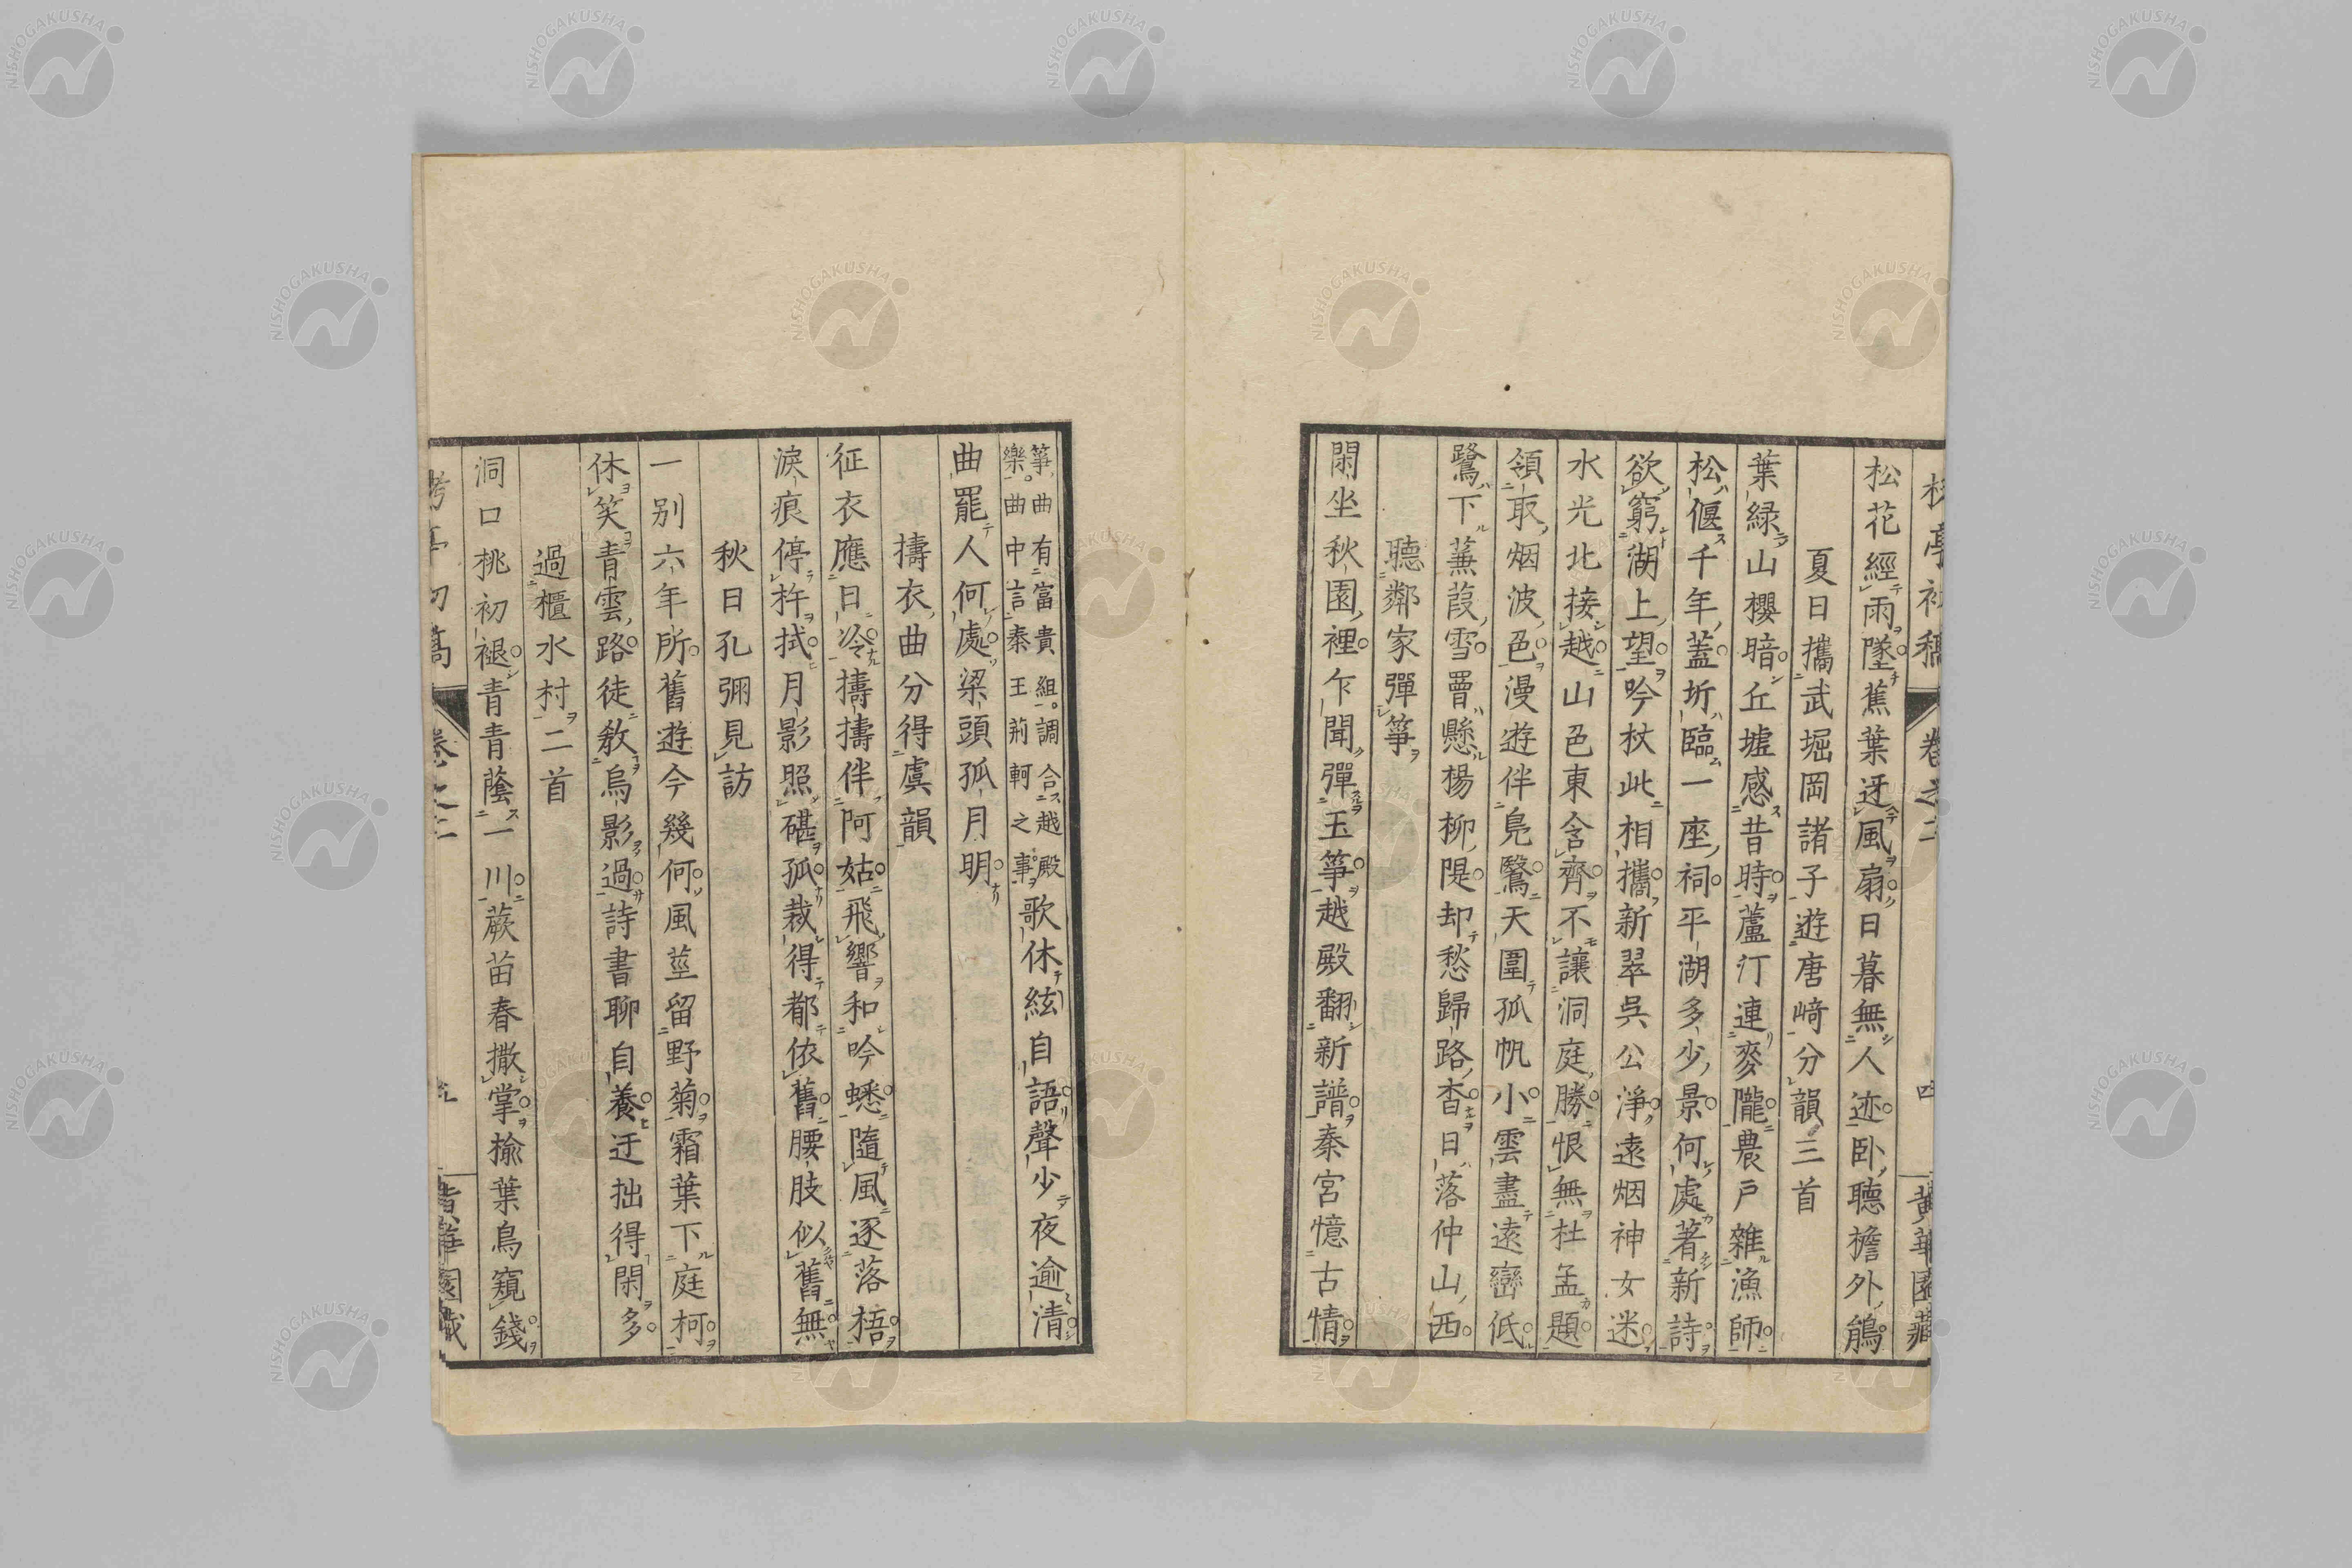 松花經雨墜蕉葉迓風扇日暮無人迹臥聽檐外鵃
夏日攜武堀岡諸子遊唐﨑分韻三首
葉緑山櫻暗丘墟感昔時蘆汀連麥隴農戸雜漁師
松偃千年蓋圻臨一座祠平湖多少景何處著新詩
欲窮湖上望吟杖此相攜新翠呉公淨遠烟神女迷
水光北接越山色東含齊不讓洞庭勝恨無杜孟題
領取烟波色漫遊伴鳧鷖天圍孤帆小雲盡遠巒低
鷺下蒹葭雪罾懸楊柳隄却愁歸路杳日落仲山西
聽鄰家彈箏
閑坐秋園裡乍聞彈玉箏越殿翻新譜秦宮憶古情
箏曲有富貴組調合越殿
樂曲中言秦王荊軻之事
歌休絃自語聲少夜逾清
曲罷人何處梁頭孤月明
擣衣曲分得虞韻
征衣應日冷擣擣伴阿姑飛響和吟蟋隨風逐落梧
淚痕停杵拭月影照碪孤裁得都依舊腰肢似舊無
秋日孔彌見訪
一別六年所舊遊今幾何風莖留野菊霜葉下庭柯
休笑青雲路徒教烏影過詩書聊自養迂拙得閑多
過櫃水村二首
洞口桃初褪青青蔭一川蕨苗春撒掌楡葉鳥窺錢
卷之二
四
黄華園藏
NISHOGAKUSHA